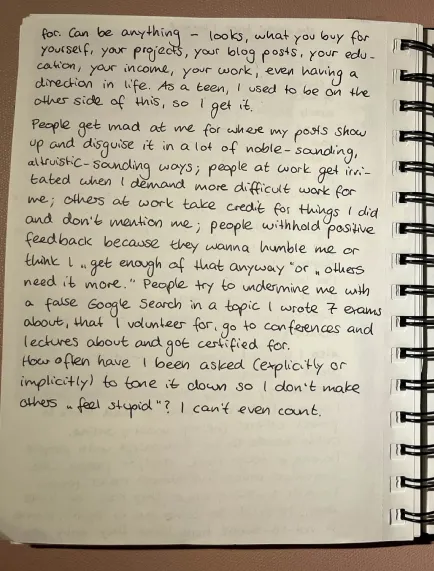 for. Can be anything – looks, what you buy for
yourself, your projects, your blog posts, your edu-
cation, your income, your work, even having a
direction in life. As a teen, I used to be on the
other side of this, so I get it.
People get mad at me for where my posts show
up and disguise it in a lot of noble-sounding,
altruistic-sounding ways; people at work get irri-
tated when I demand more difficult work for
me; others at work take credit for things I did
and don't mention me; people withhold positive
feedback because they wanna humble me or
think I „get enough of that anyway" or „others
need it more." People try to undermine me with
a false Google Search in a topic I wrote 7 exams
about, that I volunteer for, go to conferences and
lectures about and got certified for.
How often have I been asked (explicitly or
implicitly) to tone it down so I don't make
others „feel stupid"? I can't even count.